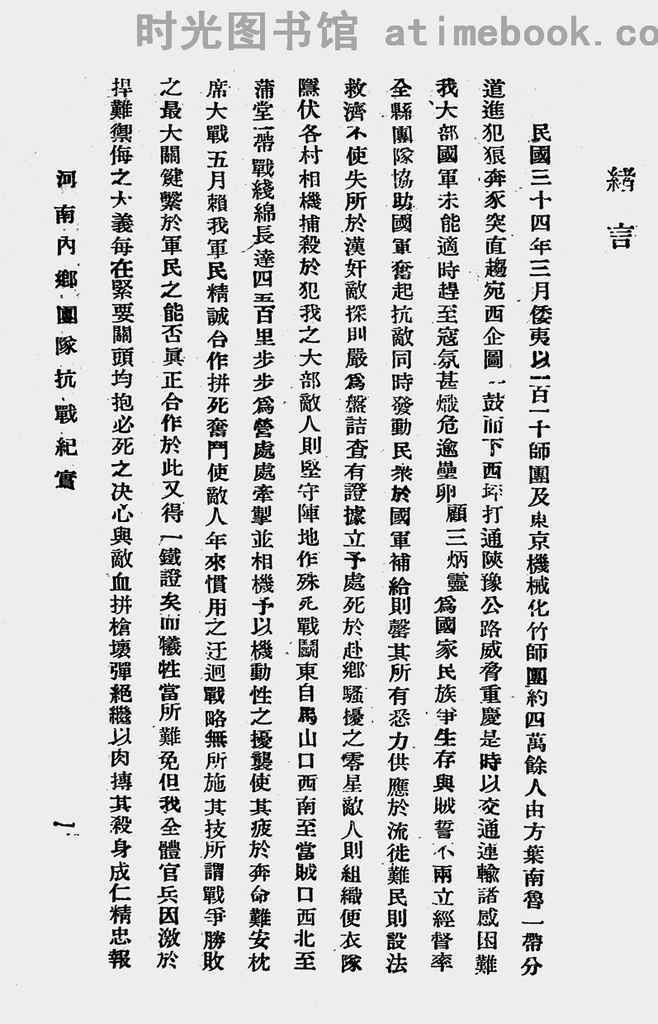 时光图书馆 atimebook.co
緒言
民國三十四年三月倭夷以一百一十師團及東京機械化竹師團約四萬餘人由方葉南魯一帶分
道進犯狼奔豕突直趨宛西企圖一鼓而下西坪打通陝豫公路威脅重慶是時以交通連輸諸感困難
我大部國軍未能適時趕至寇氛甚熾危逾壘卵顧三炳靈為國家民族爭生存與賊誓不兩立經督率
全縣團隊協助國軍奮起抗敵同時發動民衆於國軍補給則罄其所有悉力供應於流徙難民則設法
救濟不使失所於漢奸敵探則嚴為盤詰查有證據立予處死於赴鄉騷擾之零星敵人則組織便衣隊
隱伏各村相機捕殺於犯我之大部敵人則堅守陣地作殊死戰鬭東自馬山口西南至當賊口西北至
蒲堂一帶戰綫綿長達四五百里步步為營處處牽掣並相機予以機動性之擾襲使其疲於奔命難安枕
席大戰五月賴我軍民精誠合作拼死奮鬥使敵人年來慣用之迂迴戰略無所施其技所謂戰爭勝敗
之最大關健繫於軍民之能否眞正合作於此又得一鐵證矣而犧牲當所難免但我全體官兵因激於
捍難禦侮之大義每在緊要關頭均抱必死之決心與敵血拼槍壞彈絕繼以肉搏其殺身成仁精忠報
河南內鄉團隊抗戰紀實
一